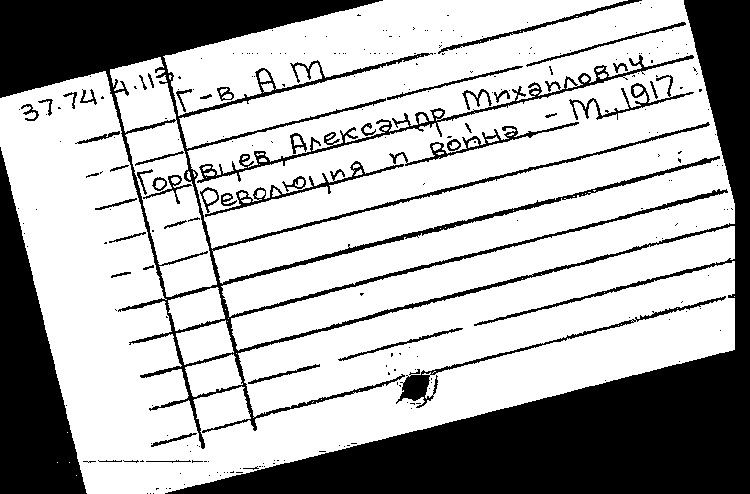 37.74.4.113.
Г-в, А. М
Горовцев, Александр Михайлович.
Революция и война. - М., 1917.